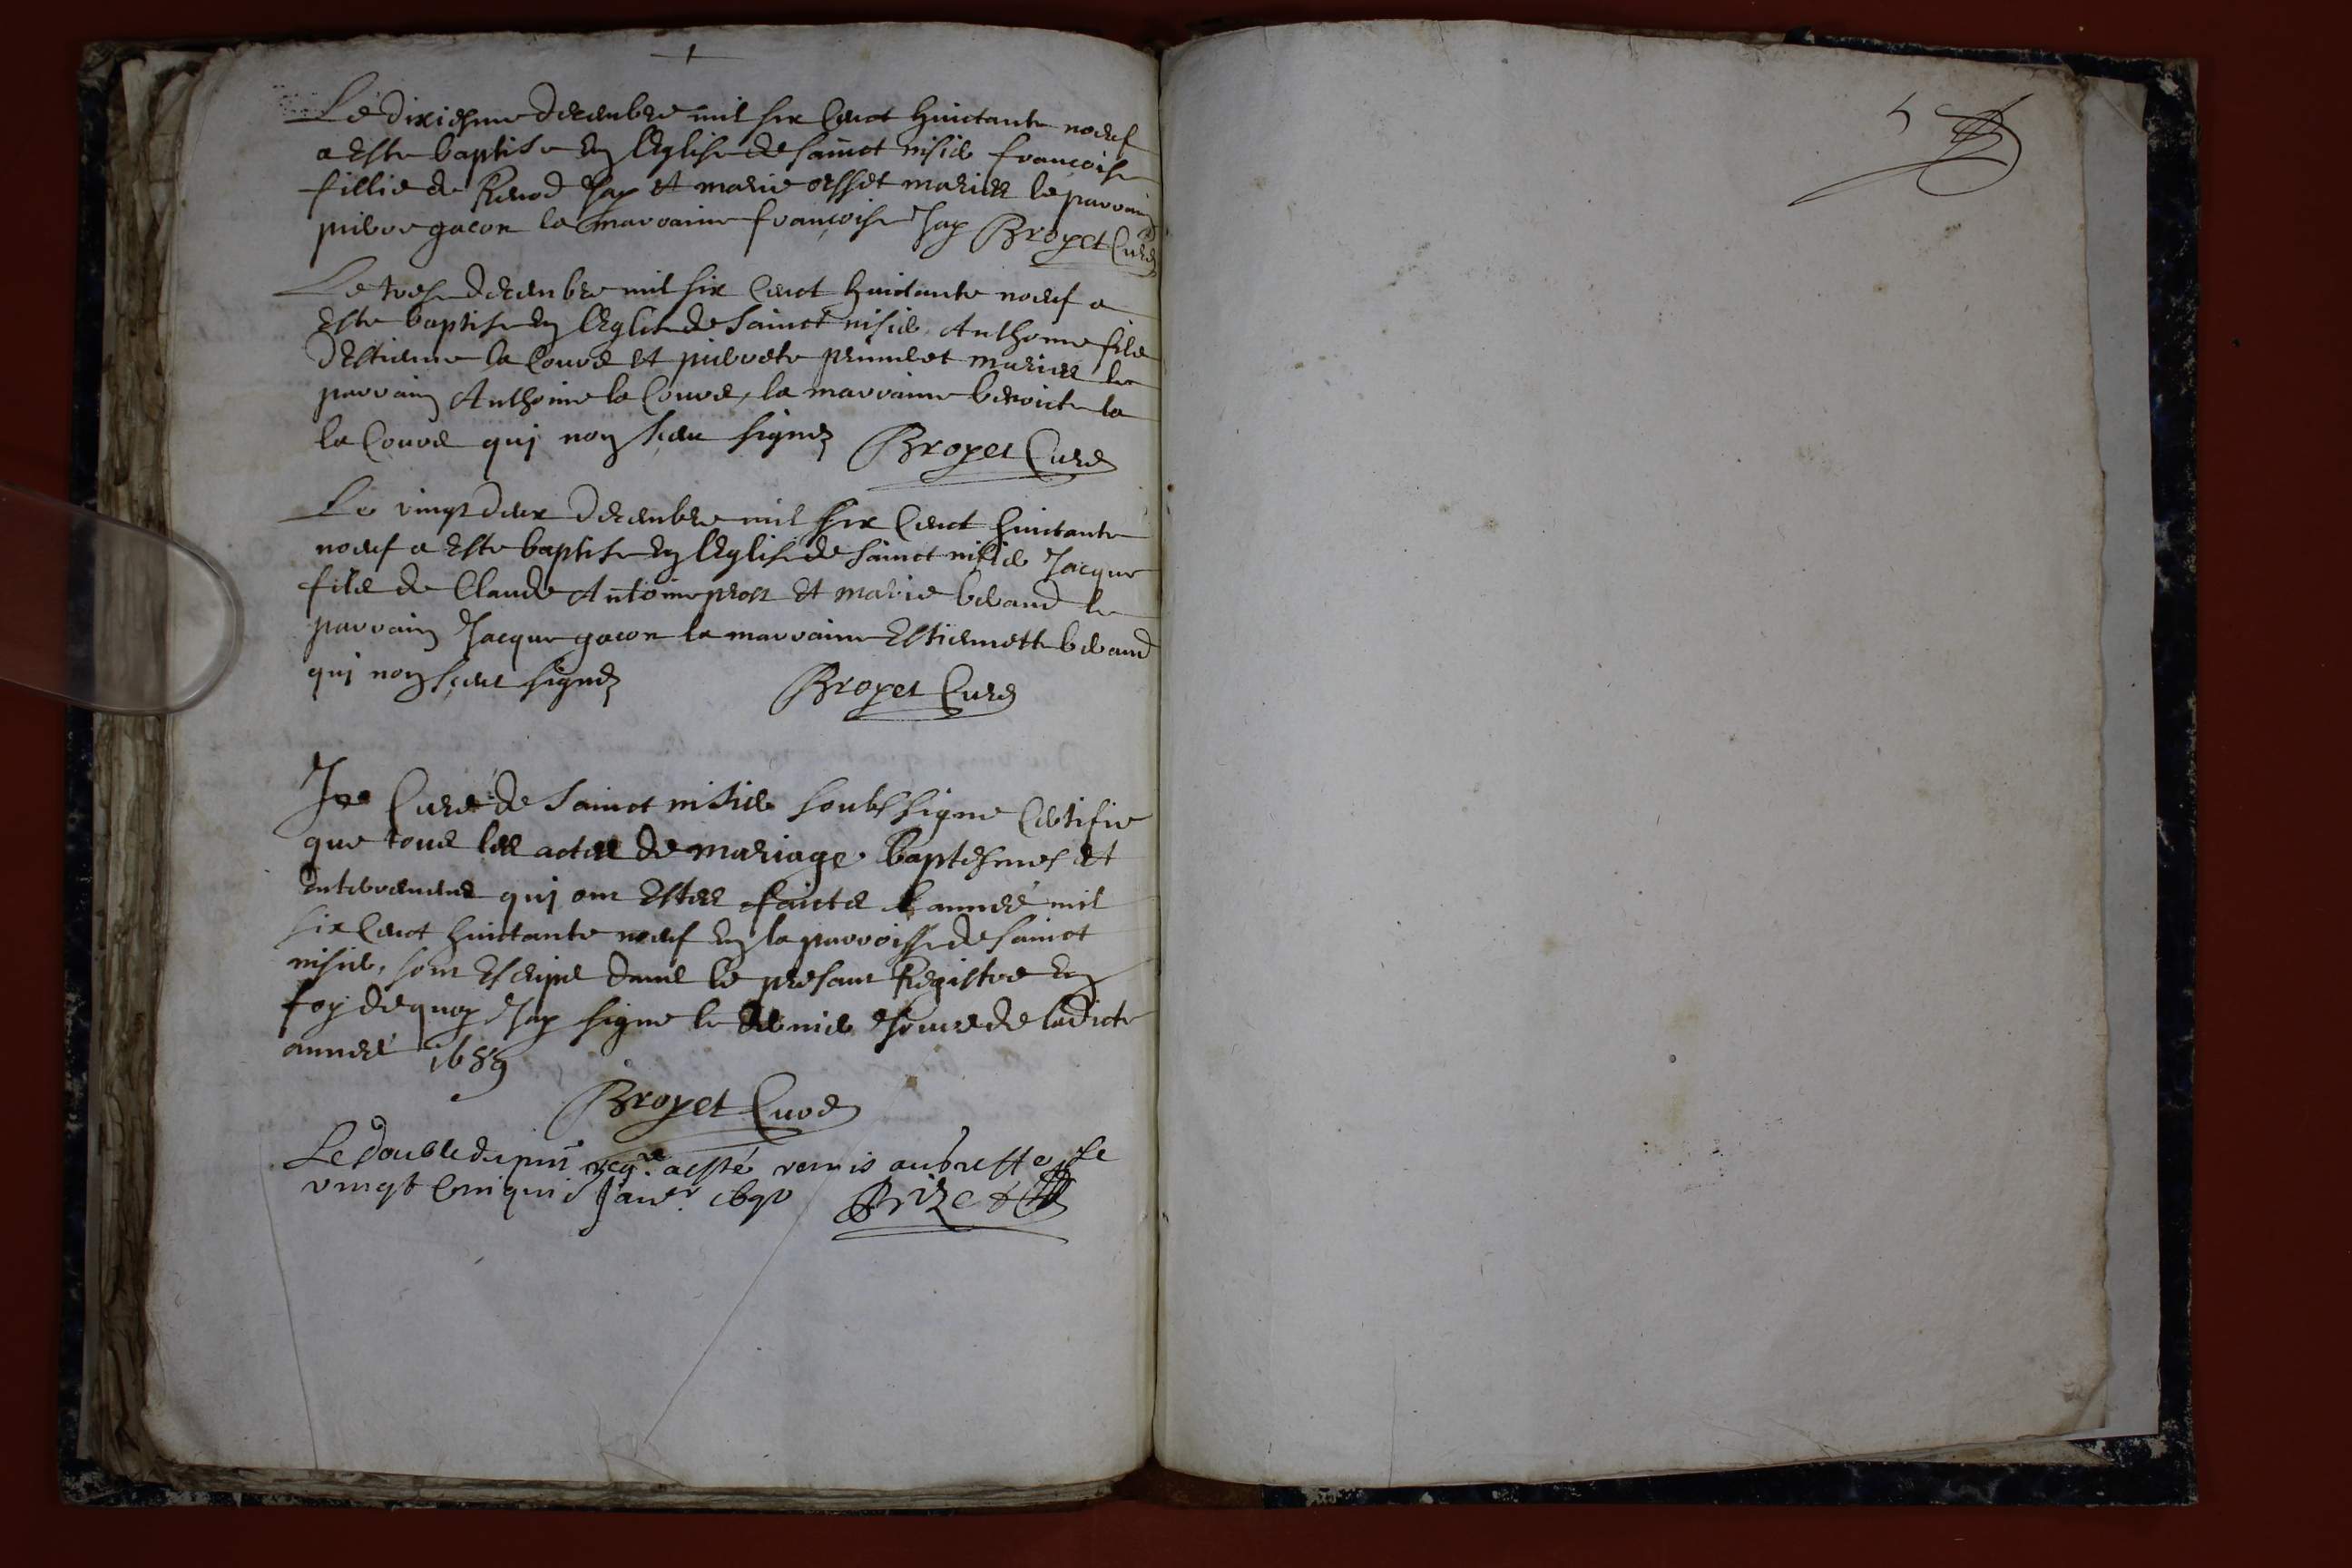 Le dixiesme decembre mil six Cent huictante noeuf
a este baptise en leglise de sainct nisier francoise
fillie de Renod Jay et marie orsset mariez le parrain
pierre gacon la marraine francoise Jay Broyet Cure
Le trese decembre mil six Cent huictante noeuf a
este baptise en leglise de sainct nisier Anthoine fils
destienne la Couve et pierrete prunlet mariez le
parrain Anthoine la Couve, la marraine benoicte la
la Couve qui non sceu signer Broyet Cure
Le vingt deux decembre mil six Cent huictante
noeuf a este baptise en leglise de sainct nisier Jacque
fils de Claude Antoine prost et marie beraud le
parrain Jacque gacon la marraine Estiennette beraud
qui non sceu signer Broyet Cure
Je Curé de sainct nisier soubsigne Certifie
que tous les actes de mariage baptesmes et
enterremens qui ont estez faicts l année mil
six Cent huictante noeuf en la parroisse de sainct
nisier, sont escript dans le presant Registre en
foy dequoy Jay signe le dernier Jour de ladicte
année 1689
Broyet Cure
Le double du pnt regre a esté remis au greffe le
vingt Cinqui Janer 1690 Brizet